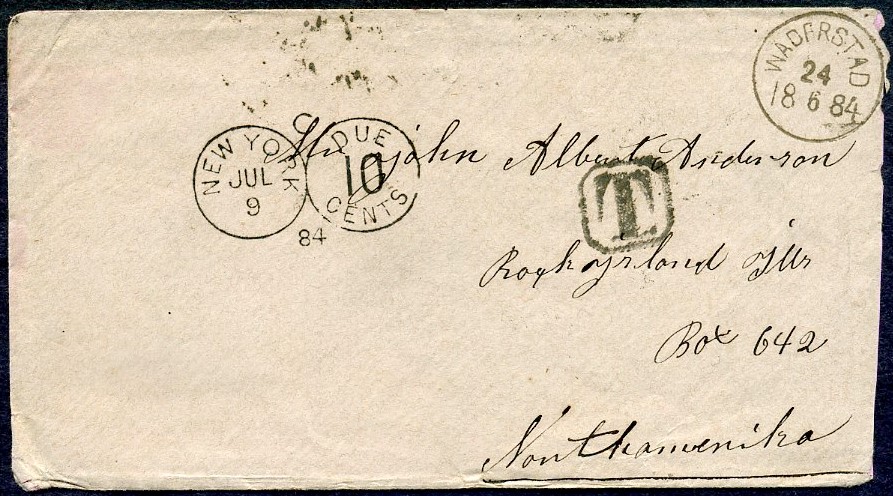 WADERSTAD
24
18 6 84
NEW YORK
JUL
9
84
DUE
10
CENTS
Mr John Albert Anderson
T
Rockysland Ills
Box 642
Northamerika